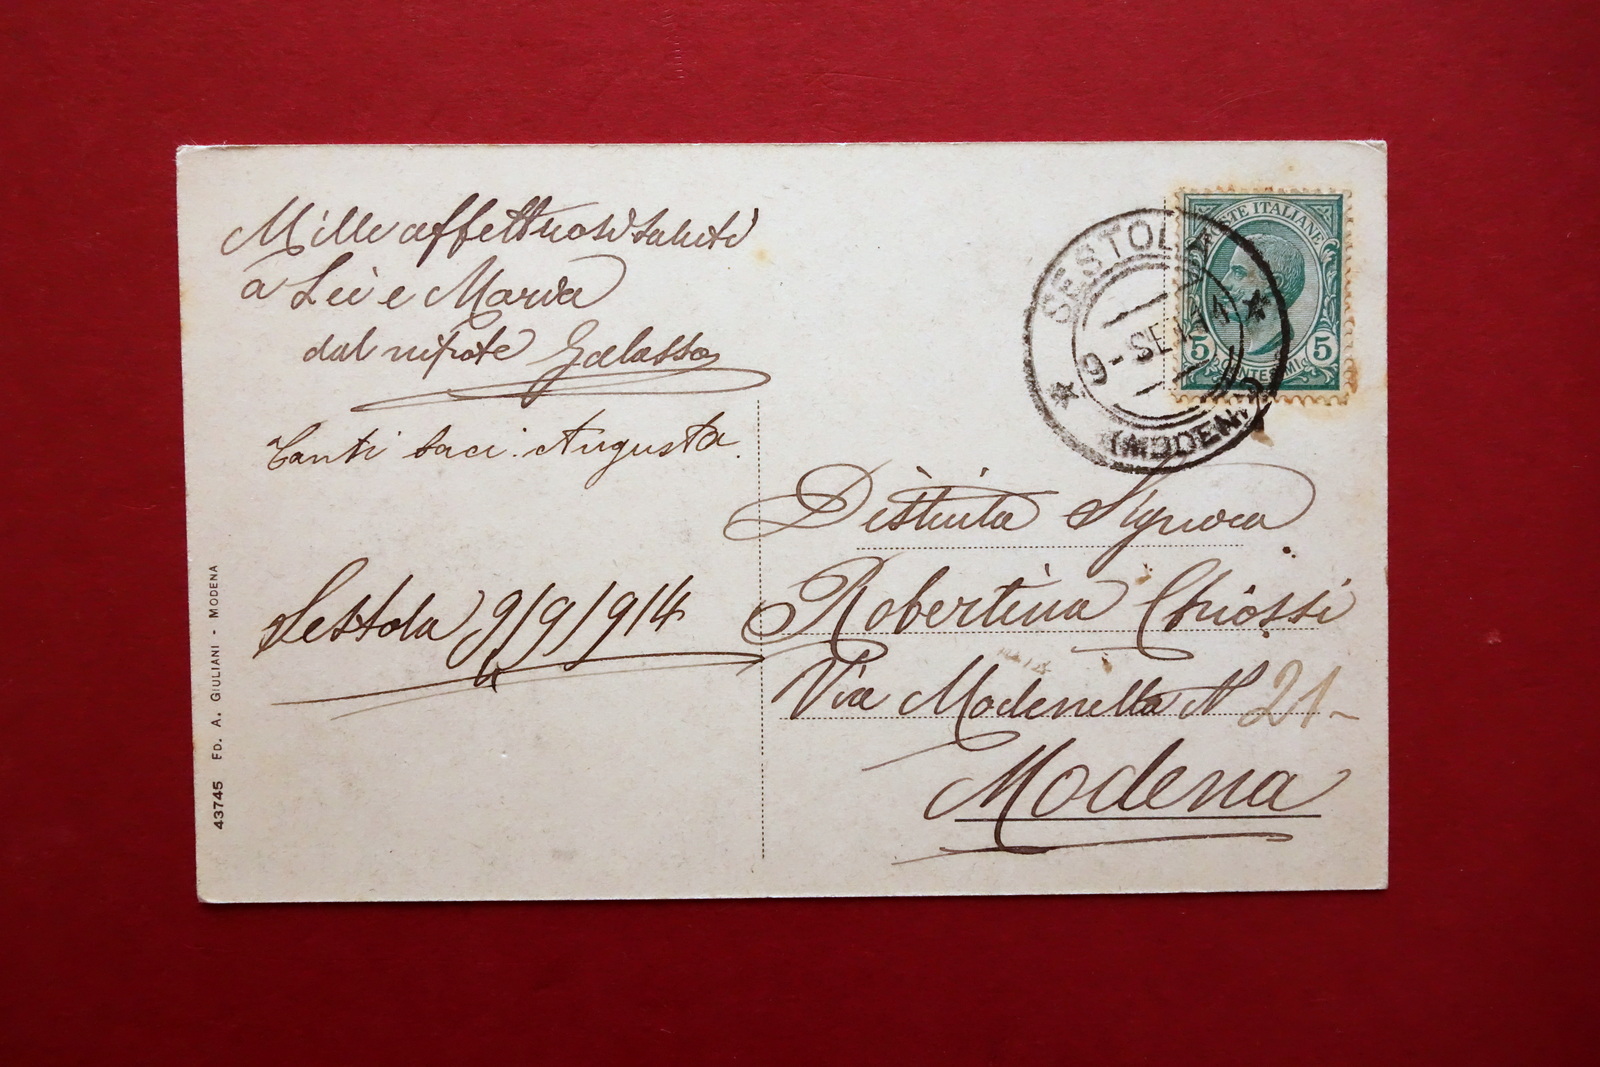 Mille affettuosi saluti
a Lei e Maria
dal nipote Galasso
Tanti baci Augusta.
Sestola 9/9/914
43745 ED. A. GIULIANI - MODENA
POSTE ITALIANE
5 5
CENTESIMI
SESTOLA
9 - SET 14
(MODENA)
Distinta Signora
Robertina Chiossi
Via Modenella N 21-
Modena